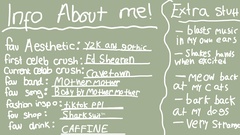 Info About me!
fav Aesthetic: Y2K and gothic
first celeb crush: Ed Sheeran
Current celeb crush: Cavetown
fav band: Mother Mother
fav song: Body by Mother mother
Fashion inspo: tiktok ppl
fav shop: Shark suit
fav drink: CAFFINE
Extra stuff
- blasts music in my own ears
- Shakes hands when excited
- MEOW back at my Cats
- bark back at my dogs
- Very strange